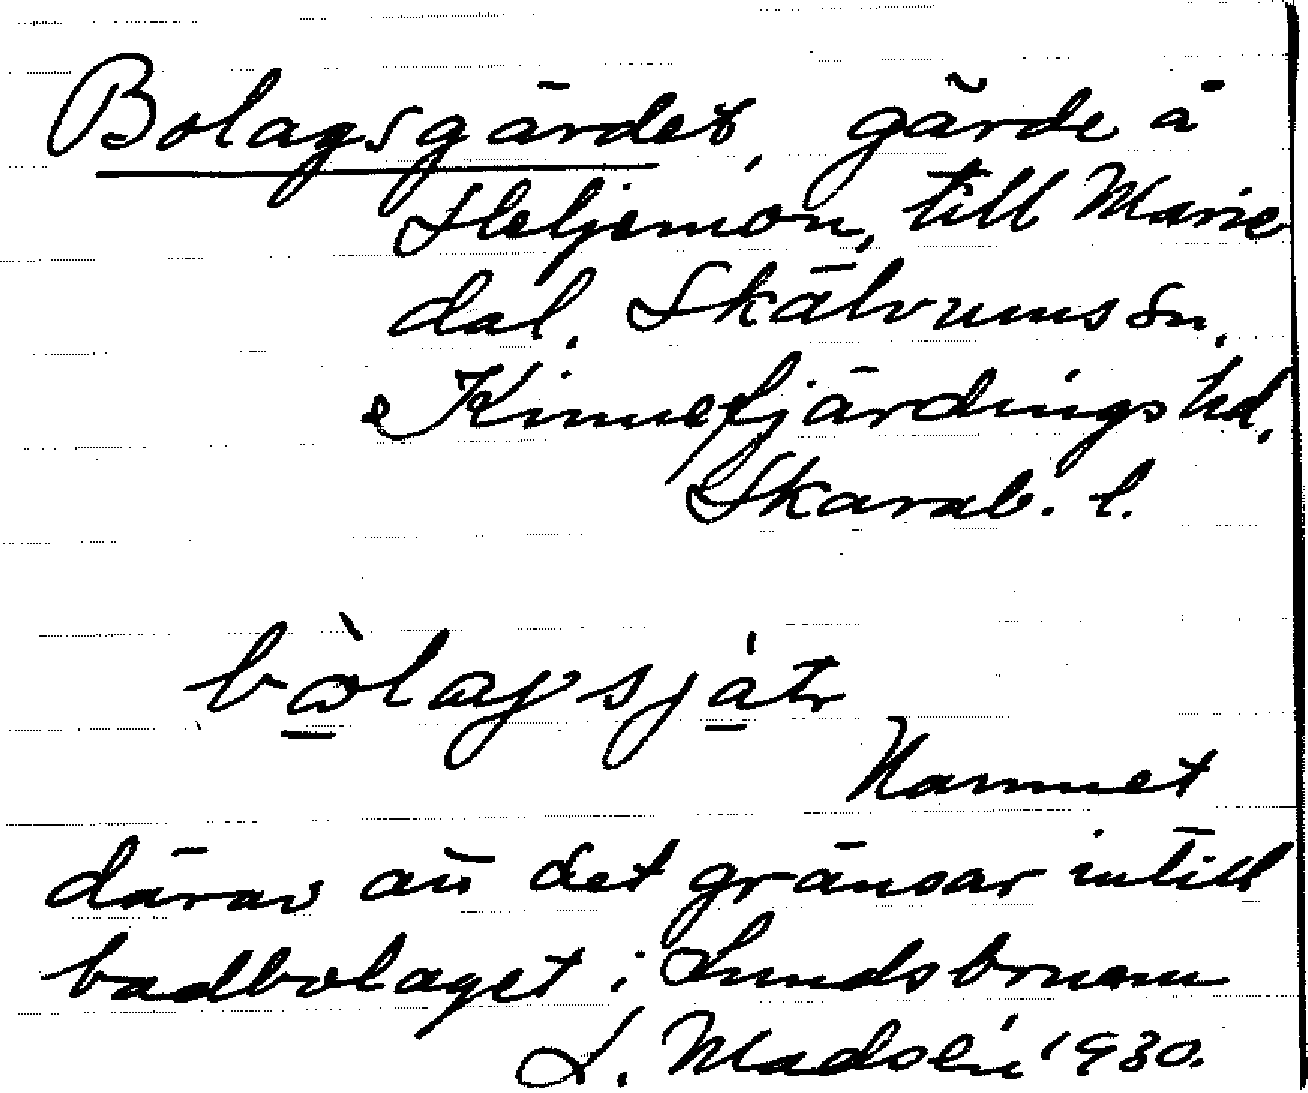 Bolagsgärdet, gärde å
Steljemon, till Marie
dal. Skälvums sn,
Kinnefjärdings hd,
Skarab. l.
bòlagsjátr
Namnet
därav att det gränsar intill
badbolaget i Lundsbrunn
L. Madsén 1930.